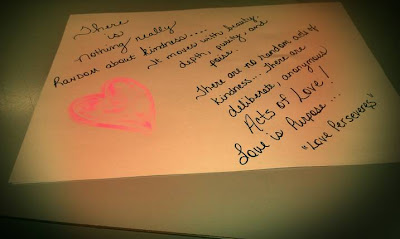 There
is
Nothing really
Random about kindness.....
It moves with beauty,
depth, purity, and
poise.
There are no random acts of
kindness... There are
deliberate, anonymous
Acts of Love!
Love is Purpose...
"Love Perseveres"